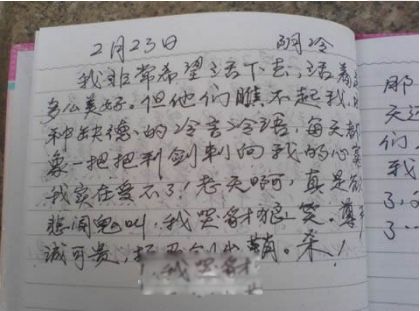 2月23日 阴冷
我非常希望活下去,活着
多么美好。但他们瞧不起我,
种缺德的冷言冷语,每天都
象一把把利剑刺向我的心
我实在受不了!老天啊,真是欲
悲闻鬼叫,我哭豺狼笑。尊
诚可贵,出鞘。杀!
我哭豺
那
天
们
我
了
了…